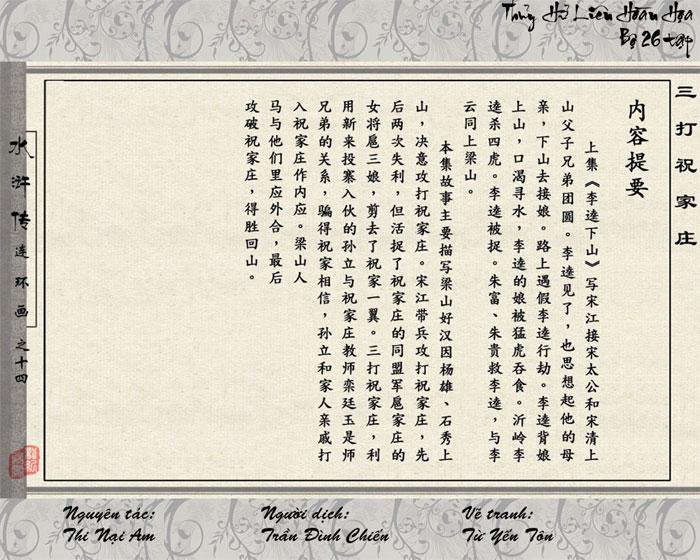 Thủy Hử Liên Hoàn Họa
Bộ 26 tập
三打祝家庄
内容提要
上集《李逵下山》写宋江接宋太公和宋清上
山父子兄弟团圆。李逵见了，也思想起他的母
亲，下山去接娘。路上遇假李逵行劫。李逵背娘
上山，口渴寻水，李逵的娘被猛虎吞食。沂岭李
逵杀四虎。李逵被捉。朱富、朱贵救李逵，与李
云同上梁山。
本集故事主要描写梁山好汉因杨雄、石秀上
山，决意攻打祝家庄。宋江带兵攻打祝家庄，先
后两次失利，但活捉了祝家庄的同盟军扈家庄的
女将扈三娘，剪去了祝家一翼。三打祝家庄，利
用新来投寨入伙的孙立与祝家庄教师栾廷玉是师
兄弟的关系，骗得祝家相信，孙立和家人亲戚打
入祝家庄作内应。梁山人
马与他们里应外合，最后
攻破祝家庄，得胜回山。
水浒传连环画之十四
Nguyên tác:
Thi Nại Am
Người dịch:
Trần Đình Chiến
Vẽ tranh:
Từ Yên Tôn